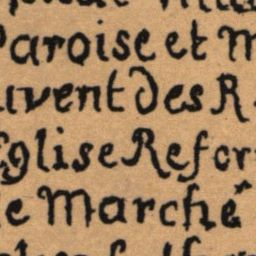 Paroise et m
uvent des R
Eglise Refor
e Marché